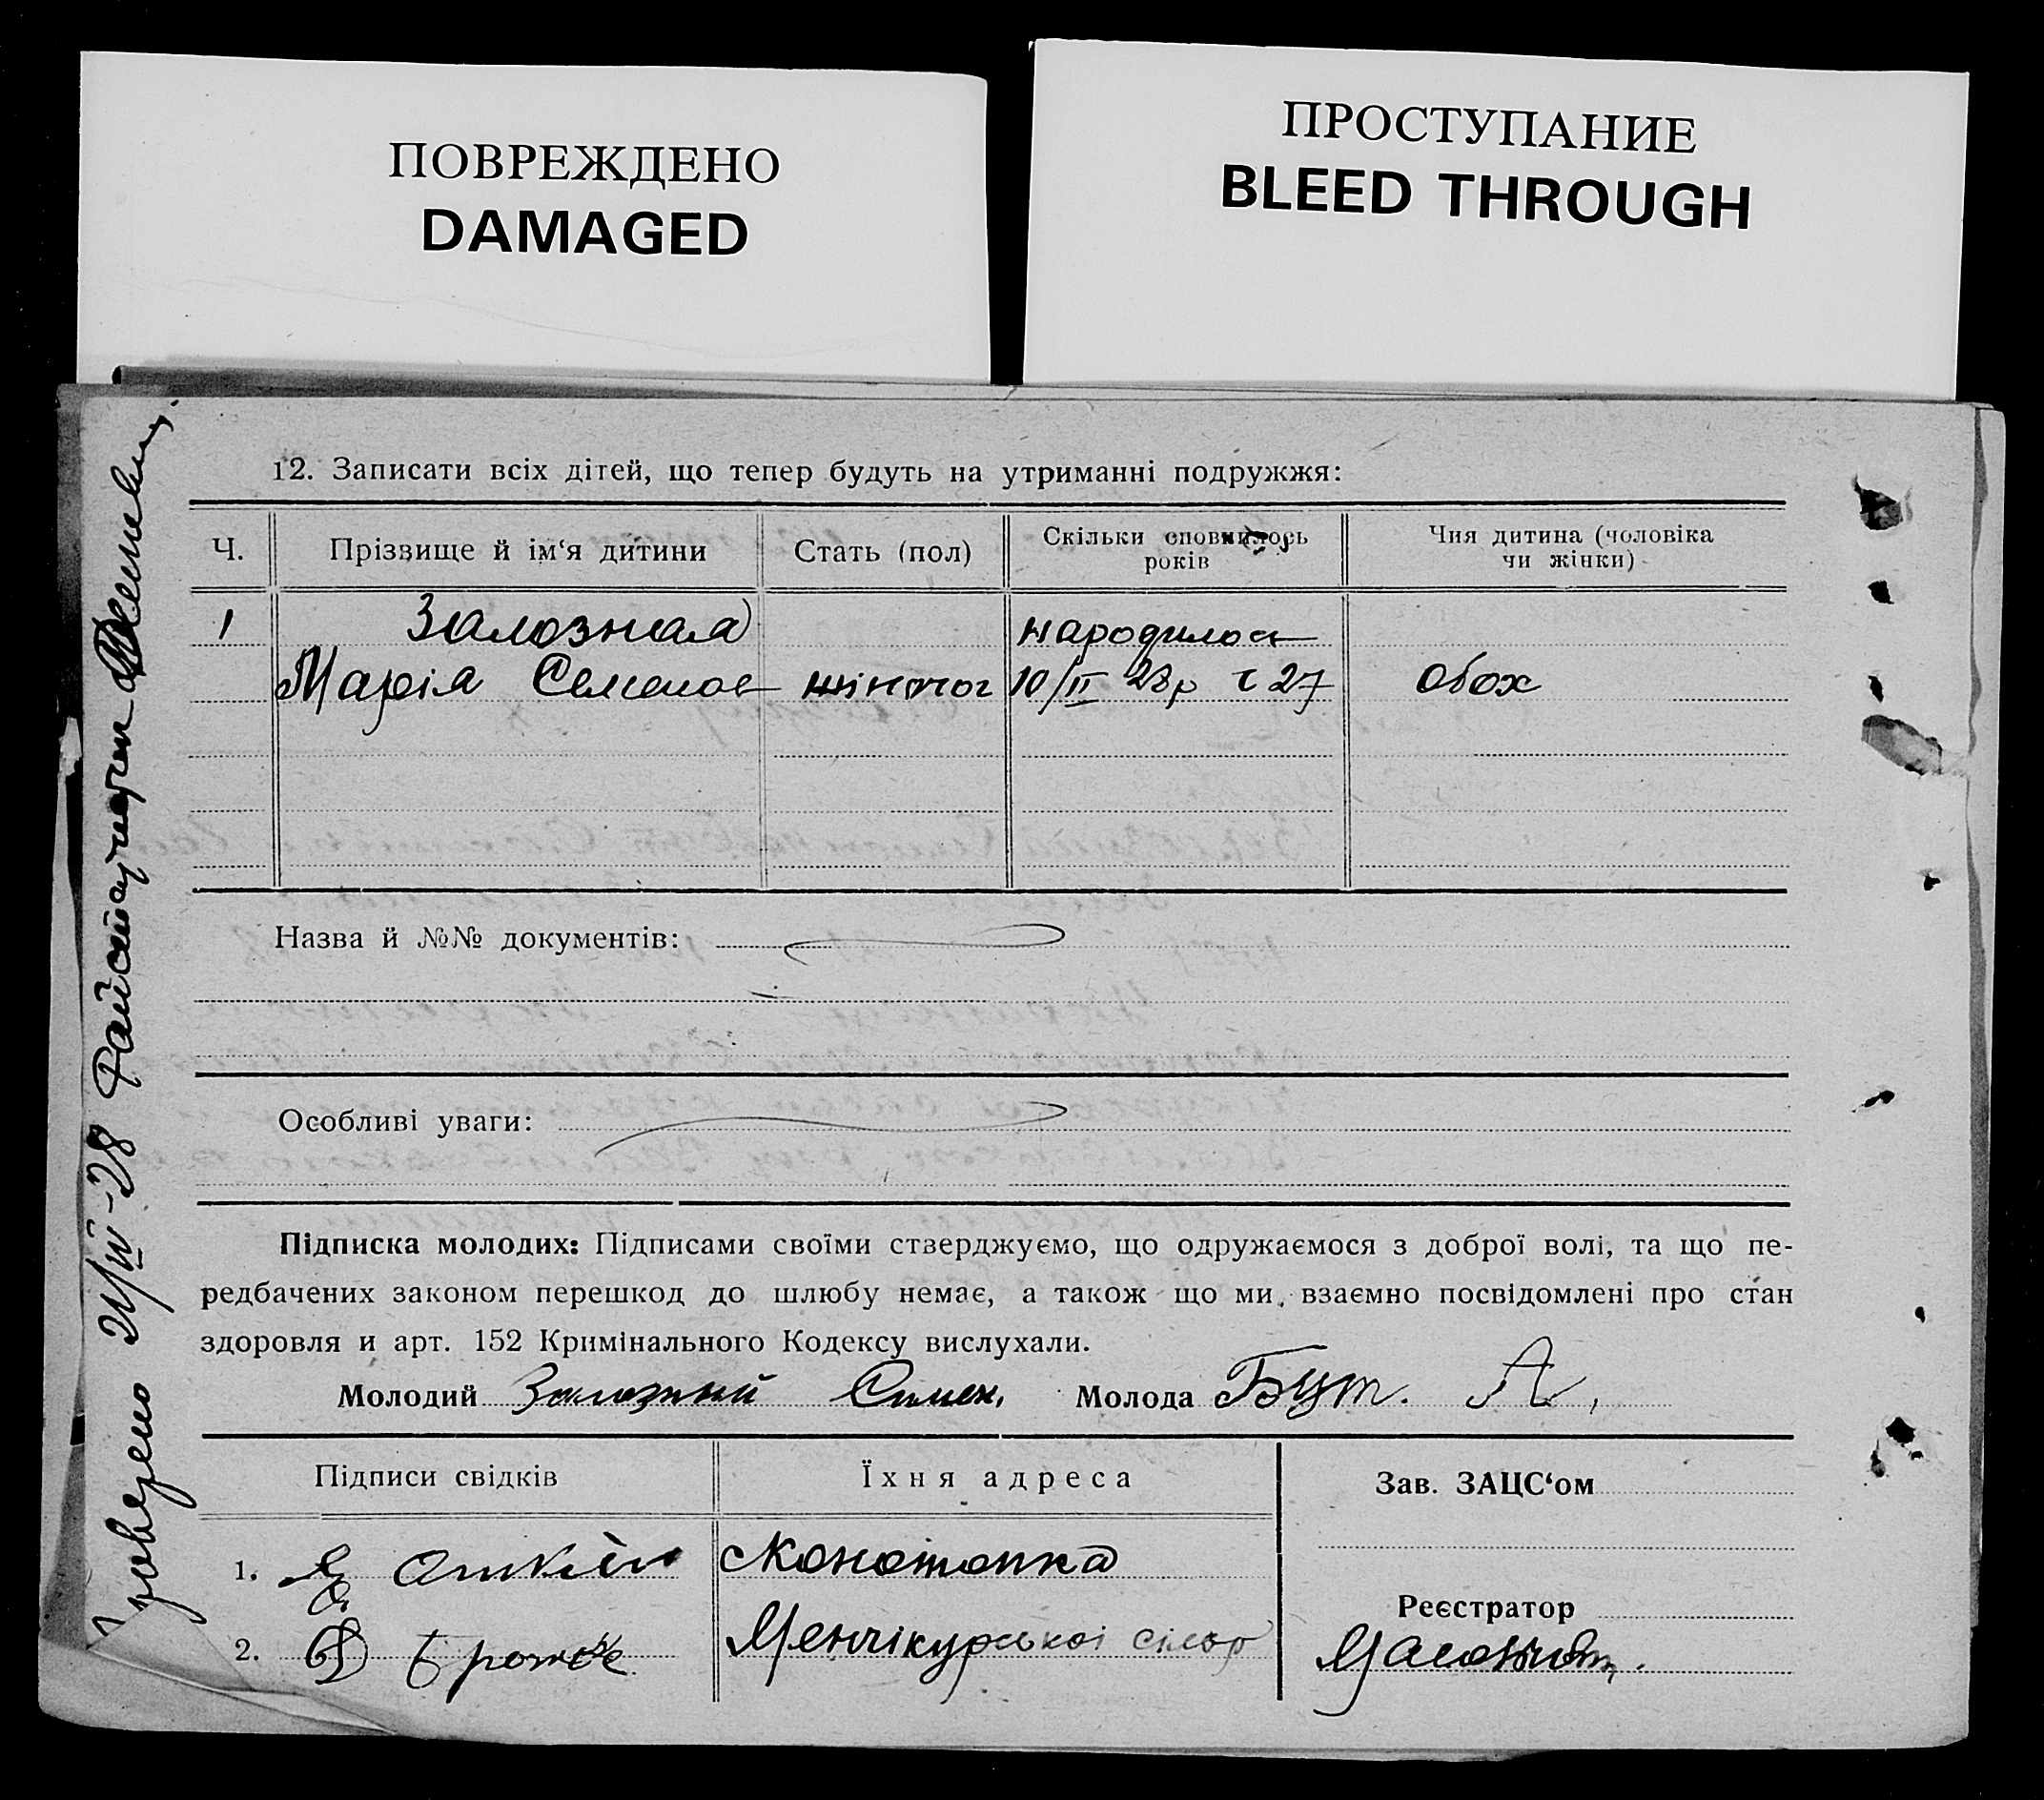 ПОВРЕЖДЕНО
DAMAGED
ПРОСТУПАНИЕ
BLEED THROUGH
12. Записати всіх дітей, що тепер будуть на утриманні подружжя:
Ч.
Прізвище й ім‘я дитини
Стать (пол)
Скільки сповнилось
років
Чия дитина (чоловіка
чи жінки)
1
Залозная
народилось
Марія Семенов
жіноч
10/II 28р
27
обох
Назва й №№ документів:
Особливі уваги:
Підписка молодих: Підписами своїми стверджуємо, що одружаємося з доброї волі, та що пе-
редбачених законом перешкод до шлюбу немає, а також що ми, взаємно посвідомлені про стан
здоровля и арт. 152 Кримінального Кодексу вислухали.
Молодий Залозний Симен. Молода Бут. А.
Підписи свідків
Їхня адреса
Зав. ЗАЦС‘ом
1.
с Конотопка
Реєстратор
2.
Менчікурської сільр
28